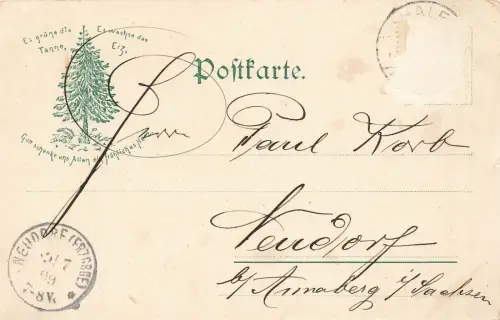 Es grüne die
Tanne,
Es wachse das
Erz,
Gott schenke uns Allen ein fröhliches Herz
Postkarte.
Herrn
Paul Korb
Neudorf
b/ Annaberg i/ Sachsen
NEUDORF (ERZGBGE)
7-8V.